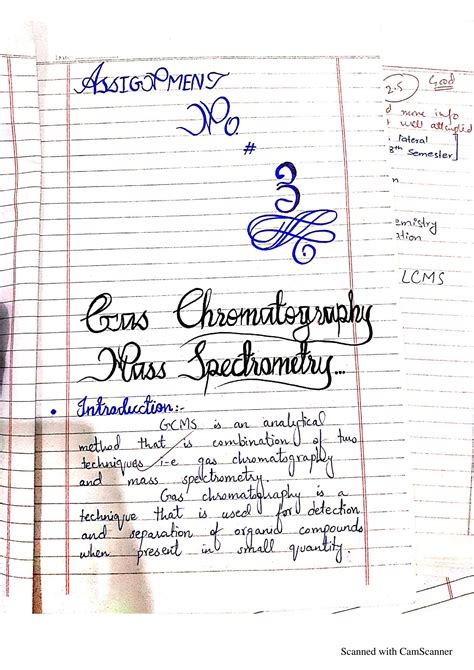 ASSIGNMENT
No.
#
3
Gas Chromatography
Mass Spectrometry...
• Introduction:-
GCMS is an analytical
method that is combination of two
techniques i-e gas chromatography
and mass spectrometry.
Gas chromatography is a
technique that is used for detection
and separation of organic compounds
when present in small quantity.
2.5 Good
more info
well attempted
lateral
8th Semester
LCMS
Scanned with CamScanner